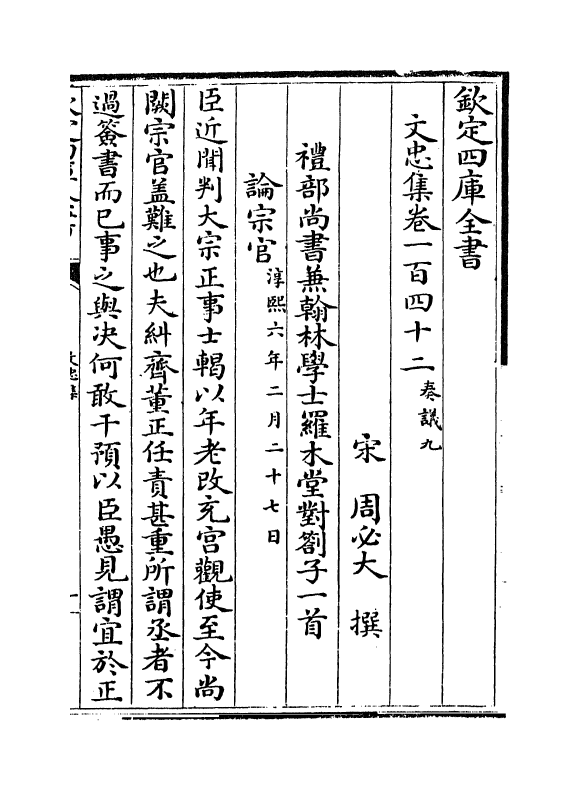 欽定四庫全書
文忠集卷一百四十二 奏議九
宋 周必大 撰
禮部尚書兼翰林學士羅木堂對劄子一首
論宗官 淳熙六年二月二十七日
臣近聞判大宗正事士輵以年老改充宫觀使至今尚
闕宗官蓋難之也夫糾齊董正任責甚重所謂丞者不
過簽書而已事之與決何敢干預以臣愚見謂宜於正
文忠集